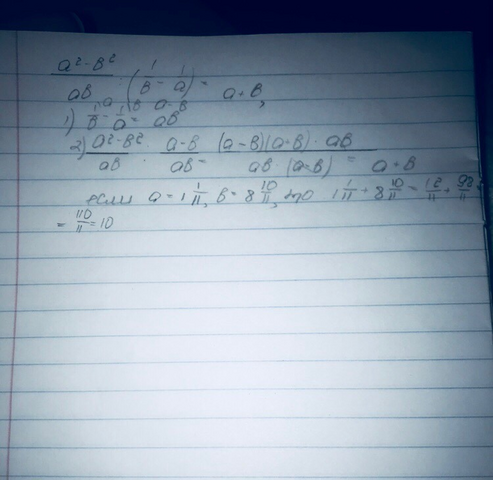 a² - b² / ab : (1/b - 1/a) = a + b,
1) 1/b - 1/a = a - b / ab
2) a² - b² / ab : a - b / ab = (a - b)(a + b) · ab / ab · (a - b) = a + b
если a = 1 1/11, b = 8 10/11, то 1 1/11 + 8 10/11 = 12/11 + 98/11
= 110/11 = 10